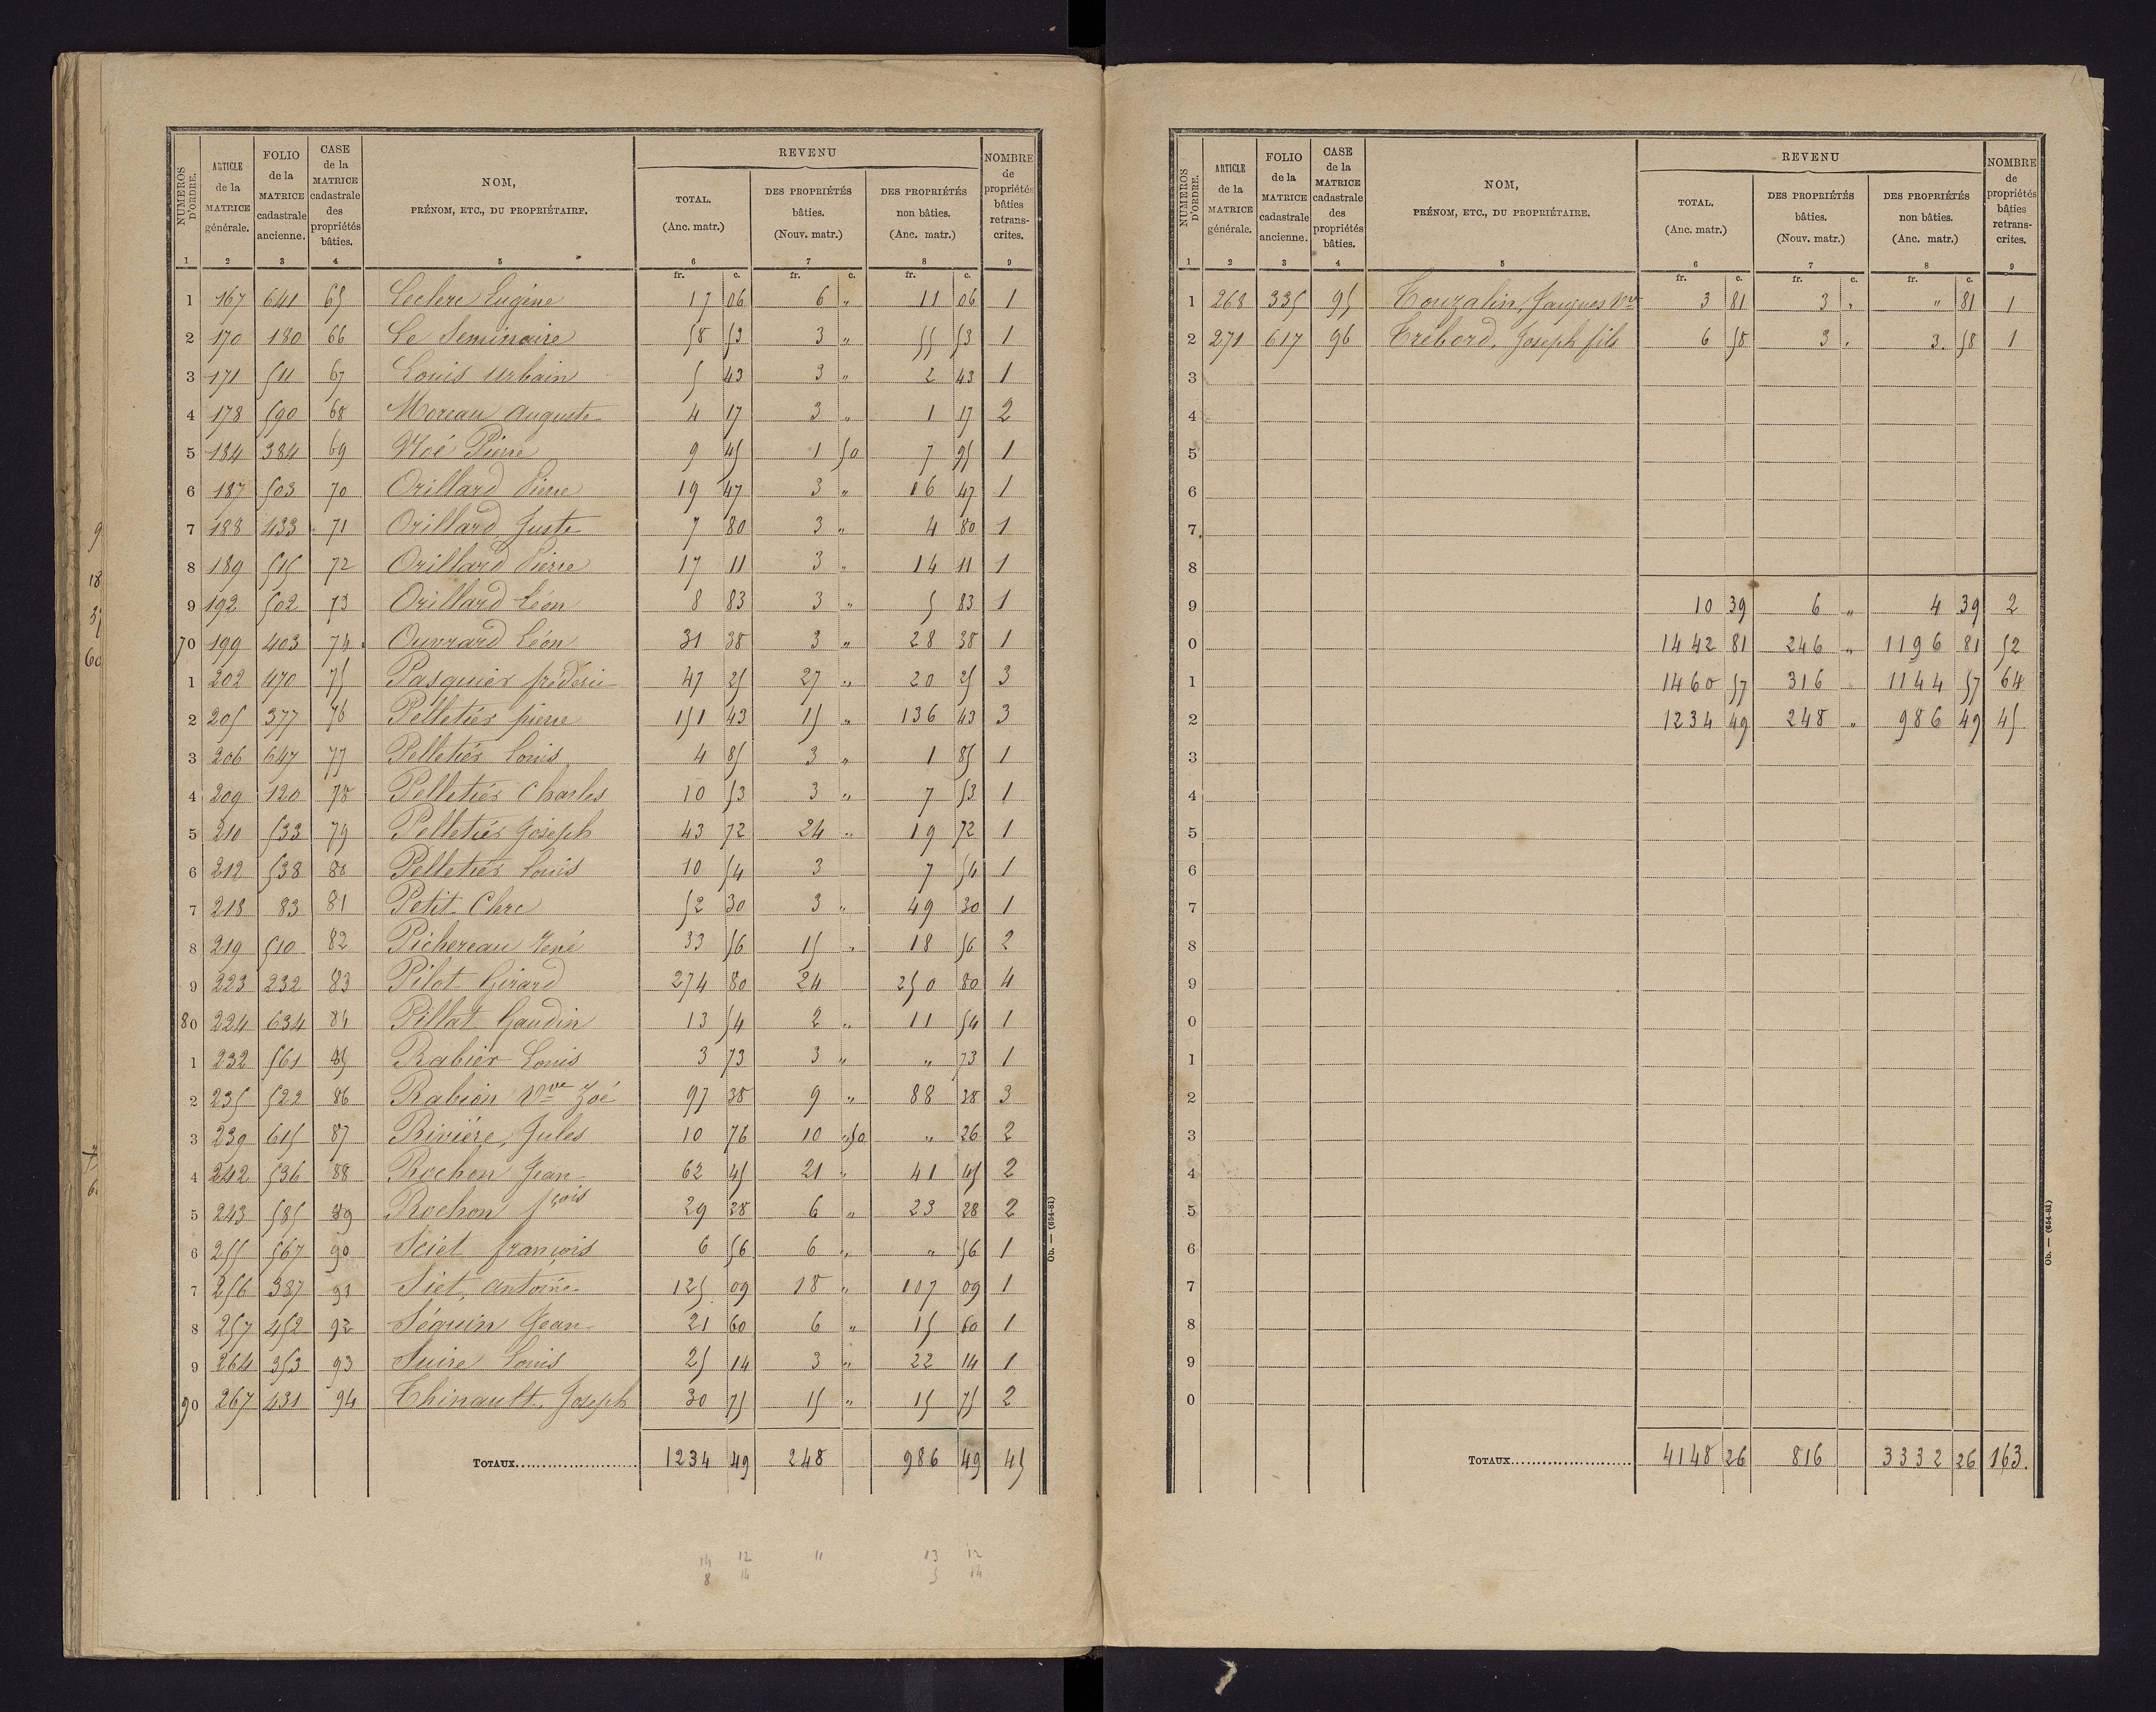 NUMÉROS D'ORDRE. ARTICLE de la MATRICE générale. FOLIO de la MATRICE cadastrale ancienne. CASE de la MATRICE cadastrale des propriétés bâties. NOM, PRÉNOM, ETC., DU PROPRIÉTAIRE. REVENU TOTAL. (Anc. matr.) DES PROPRIÉTÉS bâties. (Nouv. matr.) DES PROPRIÉTÉS non bâties. (Anc. matr.) NOMBRE de propriétés bâties retrans- crites.
1 2 3 4 5 6 7 8 9
fr. c. fr. c. fr. c.
1 167 641 65 Leclerc Eugène 17 06 6 „ 11 06 1
2 170 180 66 Le Seminaire 58 53 3 „ 55 53 1
3 171 511 67 Louis Urbain 5 43 3 „ 2 43 1
4 178 590 68 Moreau Auguste 4 17 3 „ 1 17 2
5 184 384 69 Noé Pierre 9 45 1 50 7 95 1
6 187 503 70 Orillard Pierre 19 47 3 „ 16 47 1
7 188 433 71 Orillard Juste 7 80 3 „ 4 80 1
8 189 515 72 Orillard Pierre 17 11 3 „ 14 11 1
9 192 502 73 Orillard Léon 8 83 3 „ 5 83 1
70 199 403 74 Ouvrard Léon 31 38 3 „ 28 38 1
1 202 470 75 Pasquier frédéric 47 25 27 „ 20 25 3
2 205 377 76 Pelletiér pierre 151 43 15 „ 136 43 3
3 206 647 77 Pelletiér Louis 4 85 3 „ 1 85 1
4 209 120 78 Pelletiér Charles 10 53 3 „ 7 53 1
5 210 533 79 Pelletiér Joseph 43 72 24 „ 19 72 1
6 212 538 80 Pelletiér Louis 10 54 3 7 54 1
7 218 83 81 Petit Clerc 52 30 3 „ 49 30 1
8 219 510 82 Pichereau René 33 56 15 „ 18 56 2
9 223 232 83 Pilot Girard 274 80 24 250 80 4
80 224 634 84 Pillat Gaudin 13 54 2 „ 11 54 1
1 232 561 85 Rabier Louis 3 73 3 „ „ 73 1
2 235 522 86 Rabien Vve Zoé 97 38 9 „ 88 38 3
3 239 615 87 Rivière, Jules 10 76 10 50 „ 26 2
4 242 536 88 Rochon Jean 62 45 21 „ 41 45 2
5 243 585 89 Rochon fçois 29 28 6 „ 23 28 2
6 255 567 90 Sciet françois 6 56 6 „ „ 56 1
7 256 387 91 Siet, antoine 125 09 18 „ 107 09 1
8 257 452 92 Séguin Jean 21 60 6 „ 15 60 1
9 264 353 93 Suire Louis 25 14 3 „ 22 14 1
90 267 431 94 Thinault Joseph 30 75 15 „ 15 75 2
TOTAUX 1234 49 248 986 49 45
14 12 11 13 12
8 14 5 14
Ob. — (654-81)
9
18
60
NUMÉROS D'ORDRE. ARTICLE de la MATRICE générale. FOLIO de la MATRICE cadastrale ancienne. CASE de la MATRICE cadastrale des propriétés bâties. NOM, PRÉNOM, ETC., DU PROPRIÉTAIRE. REVENU TOTAL. (Anc. matr.) DES PROPRIÉTÉS bâties. (Nouv. matr.) DES PROPRIÉTÉS non bâties. (Anc. matr.) NOMBRE de propriétés bâties retrans- crites.
1 2 3 4 5 6 7 8 9
fr. c. fr. c. fr. c.
1 268 335 95 Touzalin, Jacques Vve 3 81 3 „ „ 81 1
2 271 617 96 Trébord, Joseph fils 6 58 3 „ 3 58 1
3
4
5
6
7
8
9 10 39 6 „ 4 39 2
0 1442 81 246 „ 1196 81 52
1 1460 57 316 1144 57 64
2 1234 49 248 „ 986 49 45
3
4
5
6
7
8
9
0
1
2
3
4
5
6
7
8
9
0
TOTAUX 4148 26 816 3332 26 163.
Ob. — (654-81)